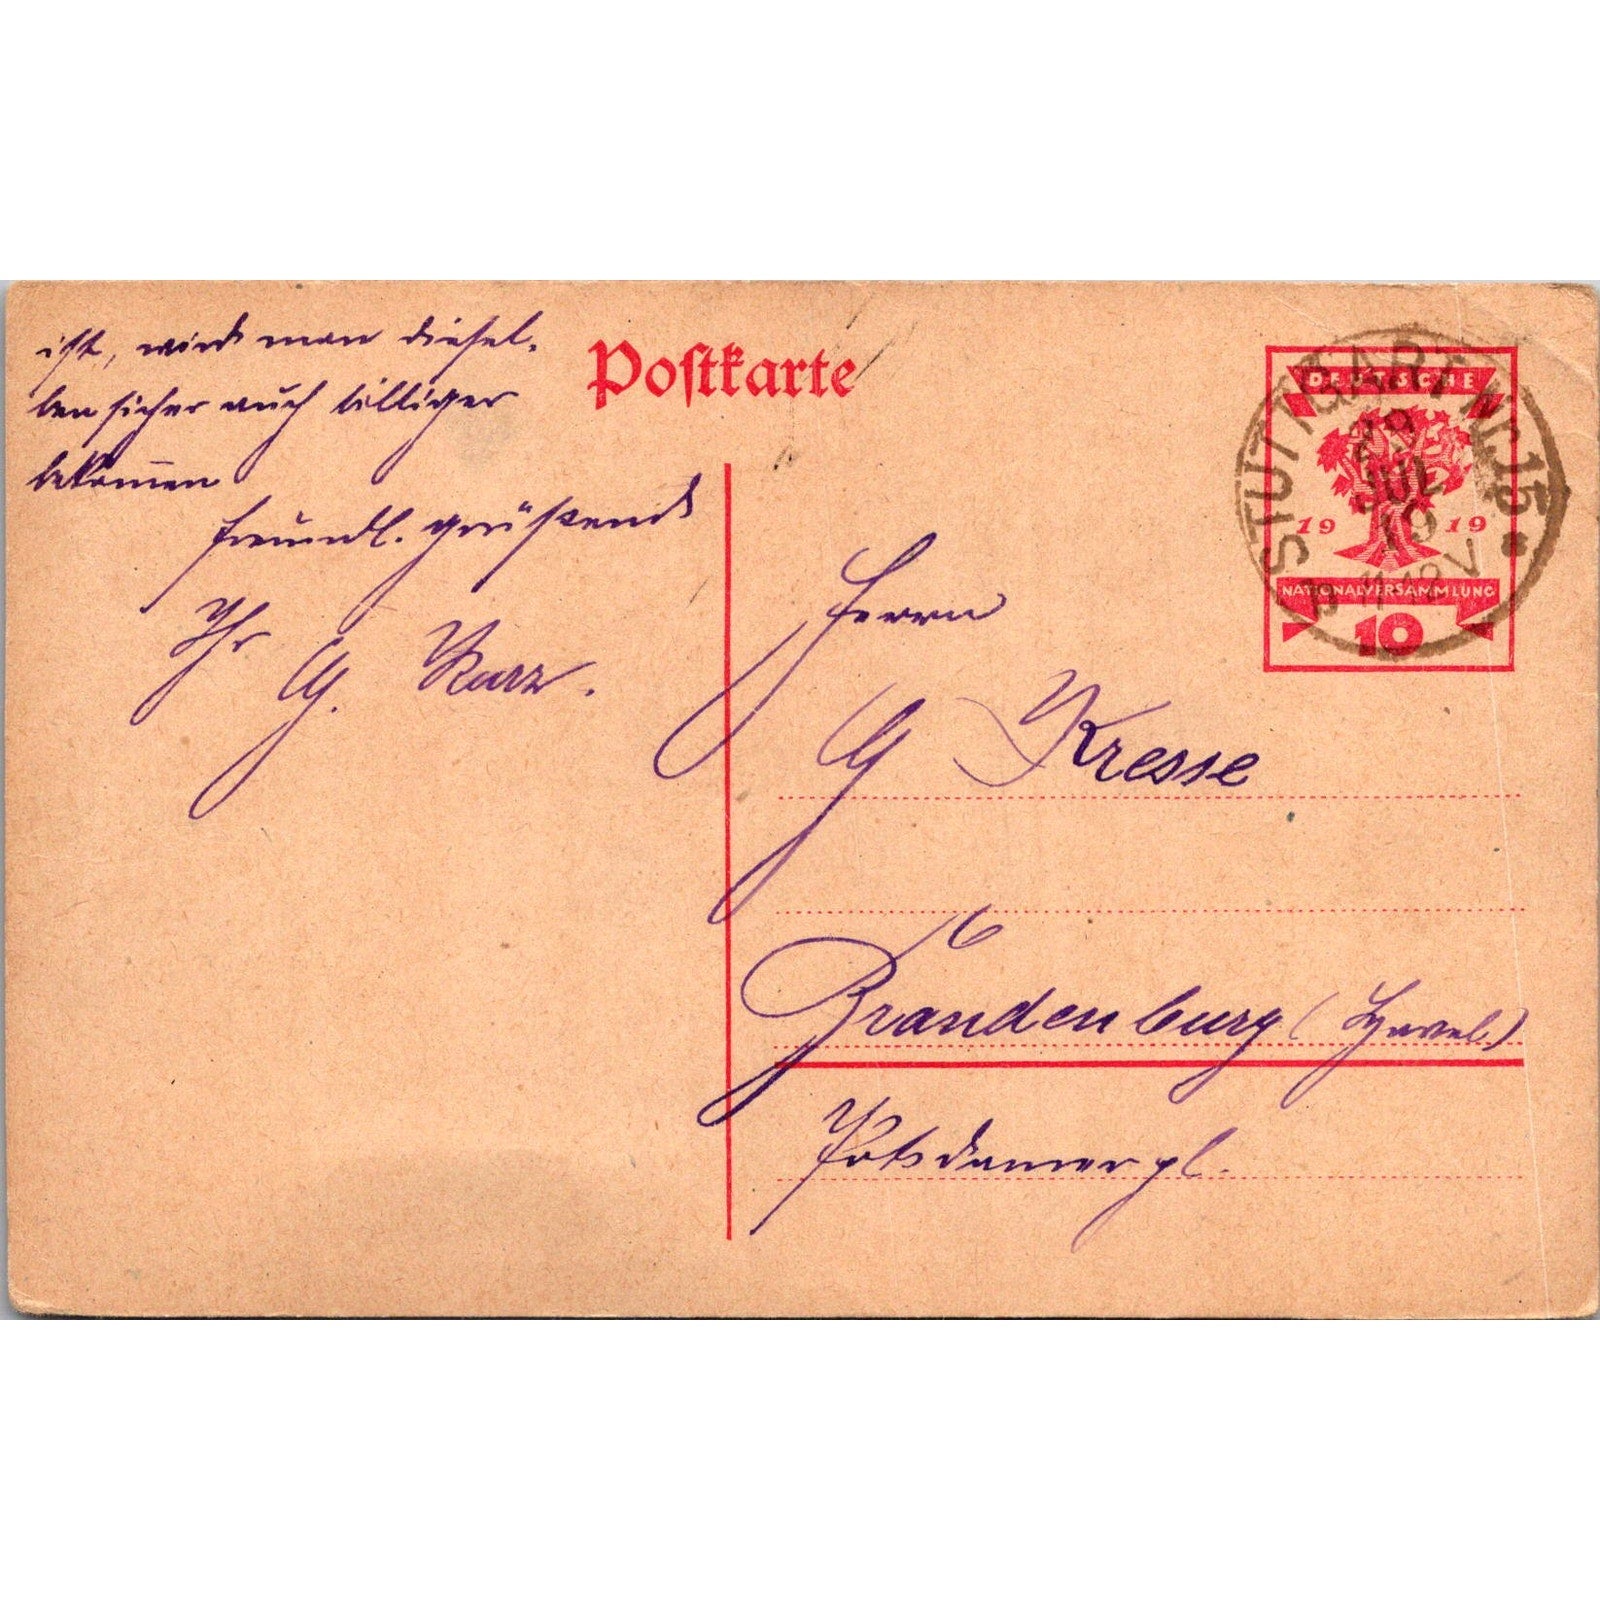 ist, wird man diesel-
ben sicher auch billiger
bekom̅en
freundl. grüßend
Ihr
G. Kurz.
Postkarte
DEUTSCHE
1919
NATIONALVERSAMMLUNG
10
STUTTGART Nr. 15
29
JUL
19
11-12 V
Herrn
G Kresse
Brandenburg (Havel)
Potsdamerpl.